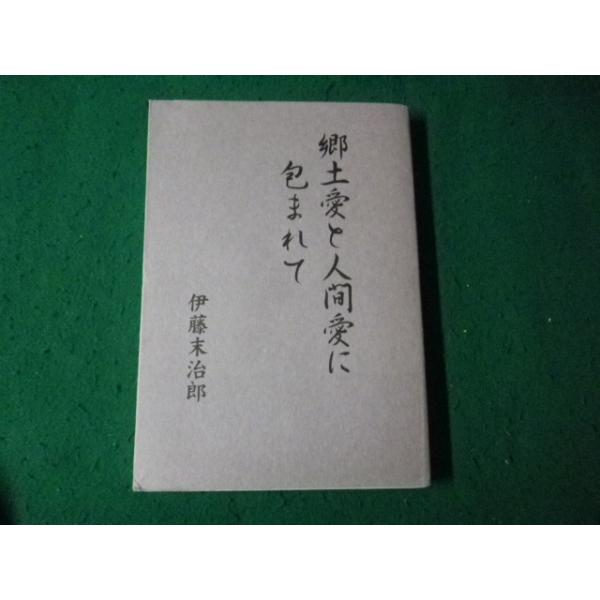 郷土愛と人間愛に
包まれて
伊藤末治郎